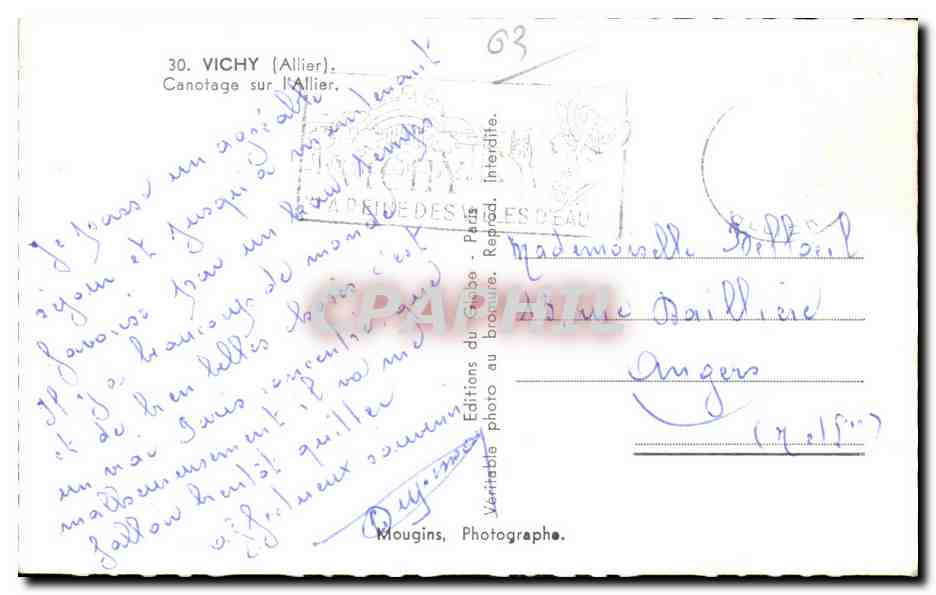 63
30. VICHY (Allier).
Canotage sur l'Allier.
LA REINE DES VILLES D'EAU
Je passe un agréable
séjour et jusqu'à maintenant
favorisé par un beau temps
Il y a beaucoup de monde
et de bien belles choses c'est
un vrai Paris concentré, que
malheureusement il va me
falloir bientôt quitter
affectueux souvenir
Mademoiselle
rue Baillière
Angers
(M et Loire)
Editions du Globe - Paris
Véritable photo au bromure. Reprod. Interdite.
Mougins, Photographe.
CPAPHIL